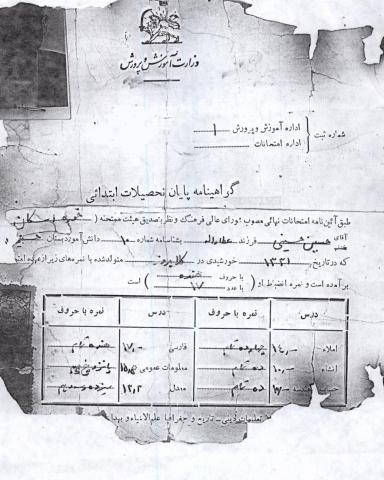 وزارت آموزش و پرورش
شماره ثبت
اداره آموزش و پرورش
اداره امتحانات
گواهینامه پایان تحصیلات ابتدائی
طبق آئین نامه امتحانات نهائی مصوب شورای عالی فرهنگ و نظر و تصدیق هیئت ممتحنه (
آقای حسین حسینی فرزند بشناسنامه شماره ۱۰ دانش آموز دبستان
که در تاریخ ۱۳۲۱ خورشیدی در متولد شده با نمره های زیر از عهده
بر آمده است و نمره انضباط او ( با حروف هفده
با عدد ۱۷ ) است
درس نمره با حروف درس نمره با حروف
املاء ۱۴٫۰ چهارده تمام فارسی ۱۷٫۰ هفده تمام
انشاء ۱۰٫۰ ده تمام معلومات عمومی ۱۵٫۵ پانزده و نیم
حساب ده تمام معدل ۱۳٫۲
تعلیمات دینی - تاریخ و جغرافیا علم الاشیاء و بهداشت